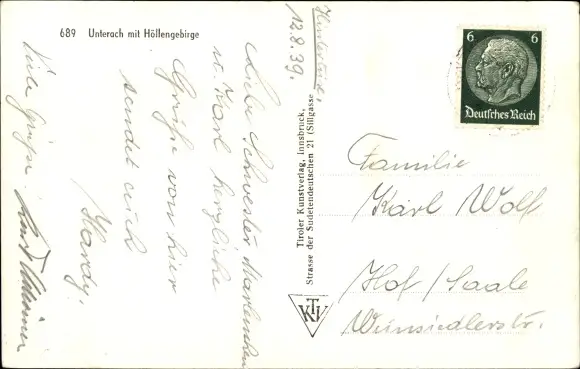 689 Unterach mit Höllengebirge
12.8.39.
Liebe Schwester Marlenchen
u. Karl herzliche
Grüße von hier
sendet euch
Hardy.
Viele Grüße
Tiroler Kunstverlag, Innsbruck,
Strasse der Sudetendeutschen 21 (Sillgasse
KTV
6 6
Deutsches Reich
Familie
Karl Wolf
Hof/Saale
Wunsiedlerstr.